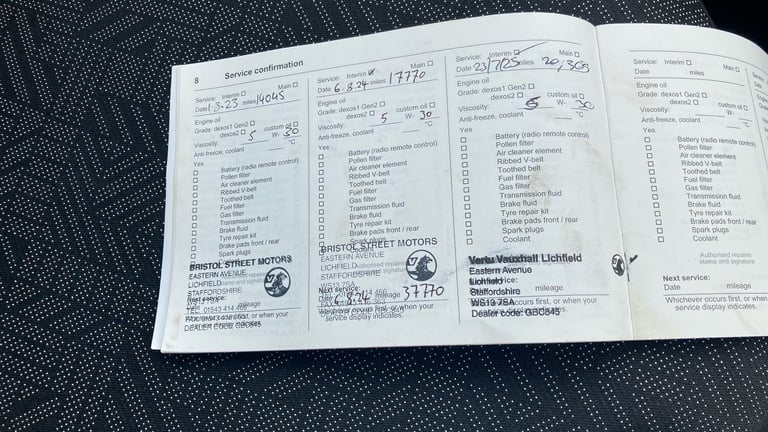 8 Service confirmation
Service: Interim Main
Date 1-3-23 miles 14045
Engine oil
Grade: dexos1 Gen2
dexos2 custom oil
Viscosity: 5 W- 30
Anti-freeze, coolant °C
Yes
Battery (radio remote control)
Pollen filter
Air cleaner element
Ribbed V-belt
Toothed belt
Fuel filter
Gas filter
Transmission fluid
Brake fluid
Tyre repair kit
Brake pads front / rear
Spark plugs
Coolant
BRISTOL STREET MOTORS
EASTERN AVENUE
LICHFIELD
STAFFORDSHIRE
WS13 7SA
Next service:
mileage
TEL: 01543 414
DEALER CODE GBC845
Service: Interim Main
Date 6.8.24 miles 17770
Engine oil
Grade: dexos1 Gen2
dexos2 custom oil
Viscosity: 5 W- 30
Anti-freeze, coolant °C
Yes
Battery (radio remote control)
Pollen filter
Air cleaner element
Ribbed V-belt
Toothed belt
Fuel filter
Gas filter
Transmission fluid
Brake fluid
Tyre repair kit
Brake pads front / rear
Spark plugs
BRISTOL STREET MOTORS
EASTERN AVENUE
LICHFIELD
STAFFORDSHIRE
WS13 7SA
Next service:
Date mileage 37770
Whichever occurs first, or when your
service display indicates.
Service: Interim Main
Date 23/7/25 miles 20,365
Engine oil
Grade: dexos1 Gen2
dexos2 custom oil
Viscosity: 5 W- 30
Anti-freeze, coolant °C
Yes
Battery (radio remote control)
Pollen filter
Air cleaner element
Ribbed V-belt
Toothed belt
Fuel filter
Gas filter
Transmission fluid
Brake fluid
Tyre repair kit
Brake pads front / rear
Spark plugs
Coolant
Vertu Vauxhall Lichfield
Eastern Avenue
Lichfield
Staffordshire
WS13 7SA
Dealer code: GBC845
Service: Interim Main
Date miles
Engine oil
Grade: dexos1 Gen2
dexos2 custom oil
Viscosity: W-
Anti-freeze, coolant °C
Yes
Battery (radio remote control)
Pollen filter
Air cleaner element
Ribbed V-belt
Toothed belt
Fuel filter
Gas filter
Transmission fluid
Brake fluid
Tyre repair kit
Brake pads front / rear
Spark plugs
Coolant
Authorised repairer
stamp and signature
Next service:
Date mileage
Whichever occurs first, or when your
service display indicates.